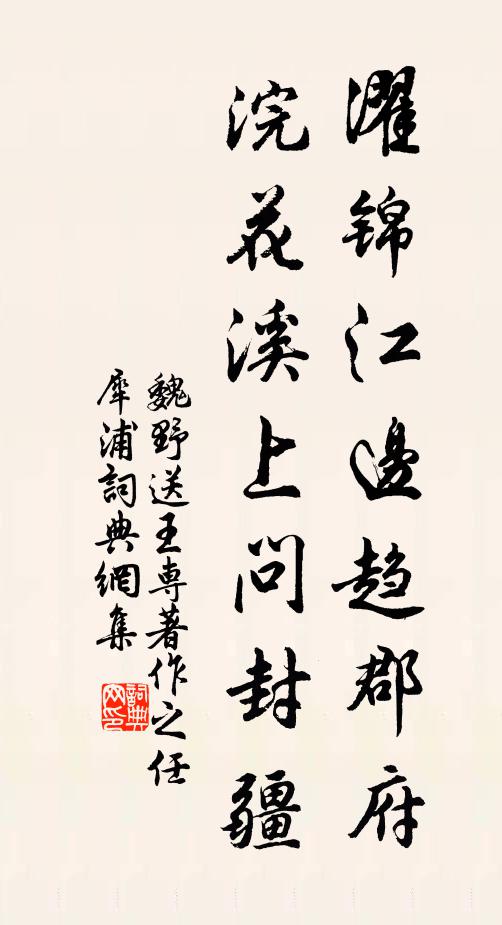 濯锦江邊趋郡府
浣花溪上问封疆
魏野送王専著作之任
犀浦詞典網集
詞典网印